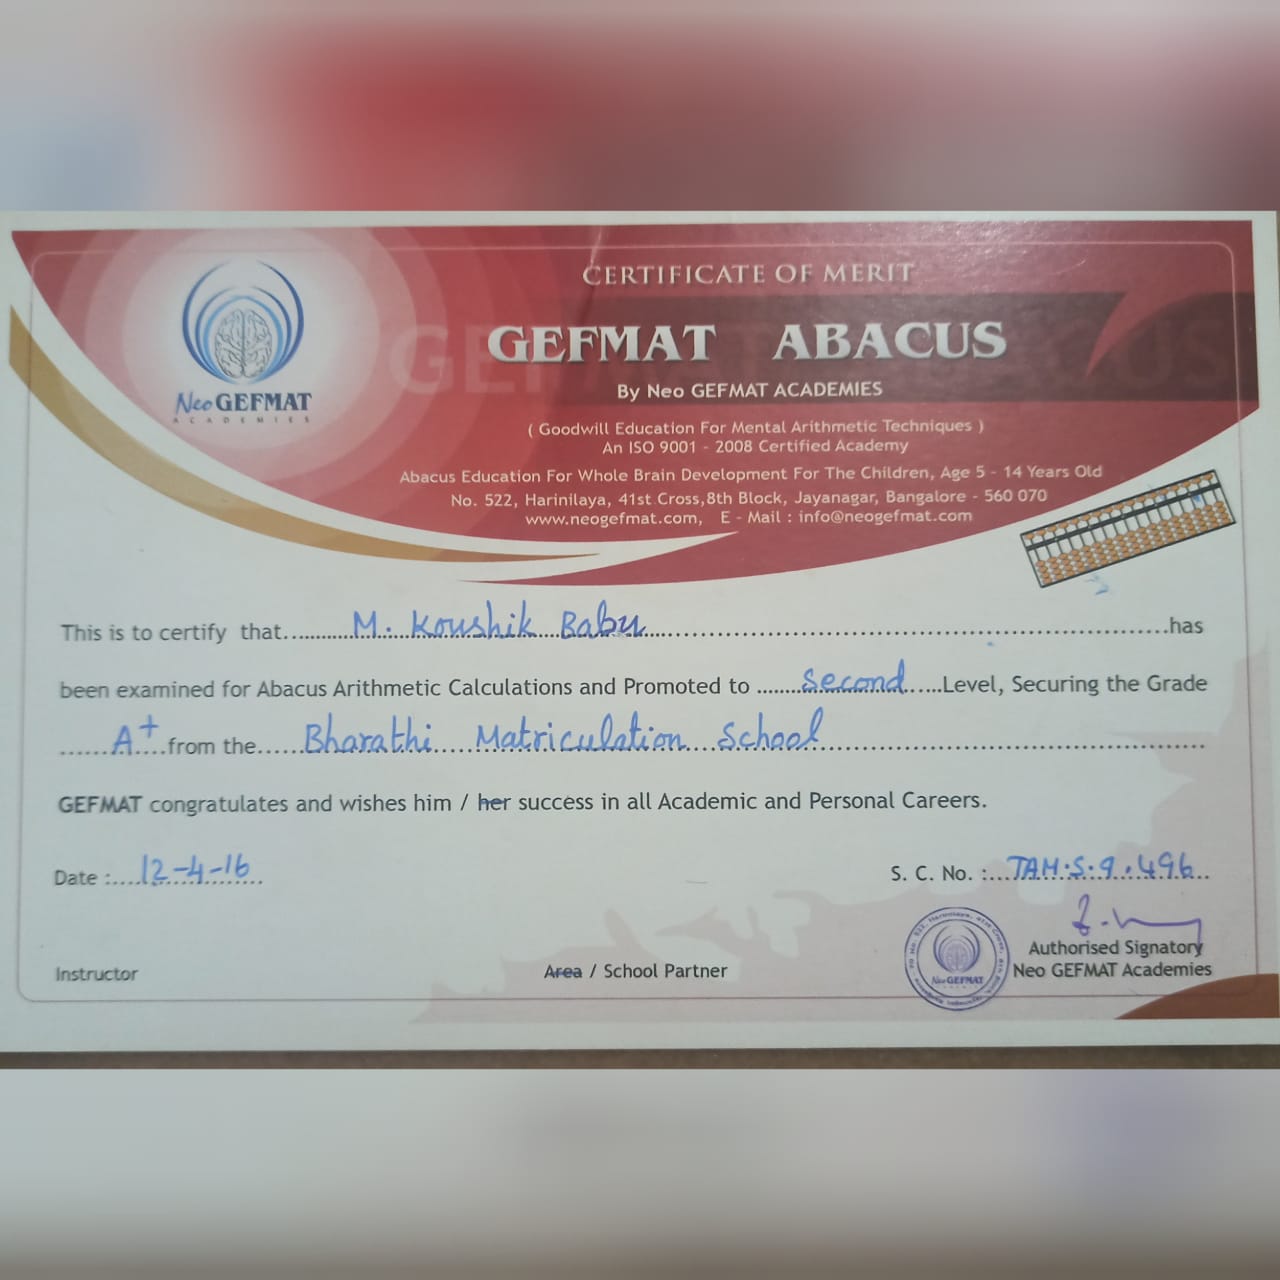 CERTIFICATE OF MERIT
GEFMAT ABACUS
By Neo GEFMAT ACADEMIES
Neo GEFMAT
ACADEMIES
( Goodwill Education For Mental Arithmetic Techniques )
An ISO 9001 - 2008 Certified Academy
Abacus Education For Whole Brain Development For The Children, Age 5 - 14 Years Old
No. 522, Harinilaya, 41st Cross,8th Block, Jayanagar, Bangalore - 560 070
www.neogefmat.com, E - Mail : info@neogefmat.com
This is to certify that M. Koushik Babu has
been examined for Abacus Arithmetic Calculations and Promoted to Second Level, Securing the Grade
A+ from the Bharathi Matriculation School
GEFMAT congratulates and wishes him / her success in all Academic and Personal Careers.
Date : 12-4-16
S. C. No. : TAM.S.9.496
Authorised Signatory
Neo GEFMAT Academies
Instructor
Area / School Partner
Neo GEFMAT